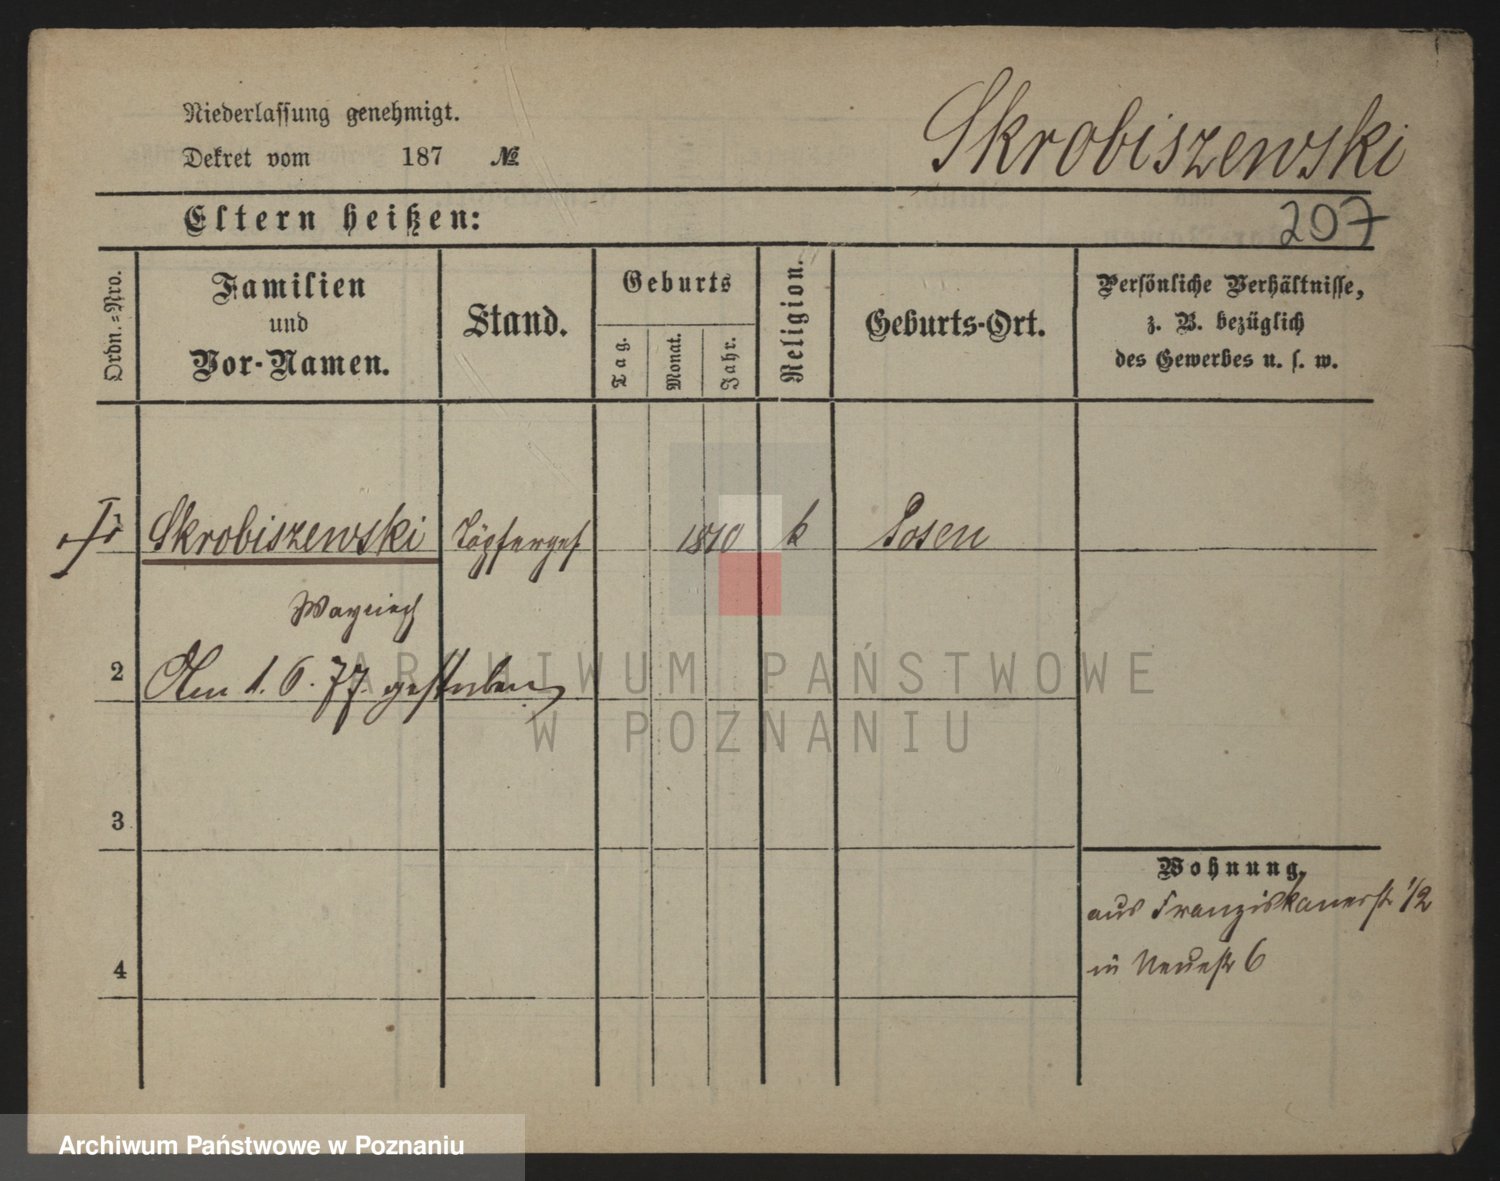 Niederlassung genehmigt.
Dekret vom 187 №
Skrobiszewski
Eltern heißen:
207
Ordn.=Nro.
Familien
und
Vor-Namen.
Stand.
Geburts
Tag.
Monat.
Jahr.
Religion.
Geburts-Ort.
Persönliche Verhältnisse,
z. B. bezüglich
des Gewerbes u. s. w.
1 Skrobiszewski Töpferges 1810 k Posen
2 Am 1. 6. 77. gestorben
ARCHIWUM PAŃSTWOWE
W POZNANIU
3
Wohnung.
aus Franziskanerstr 1/2
4
in Neuestr 6
Archiwum Państwowe w Poznaniu